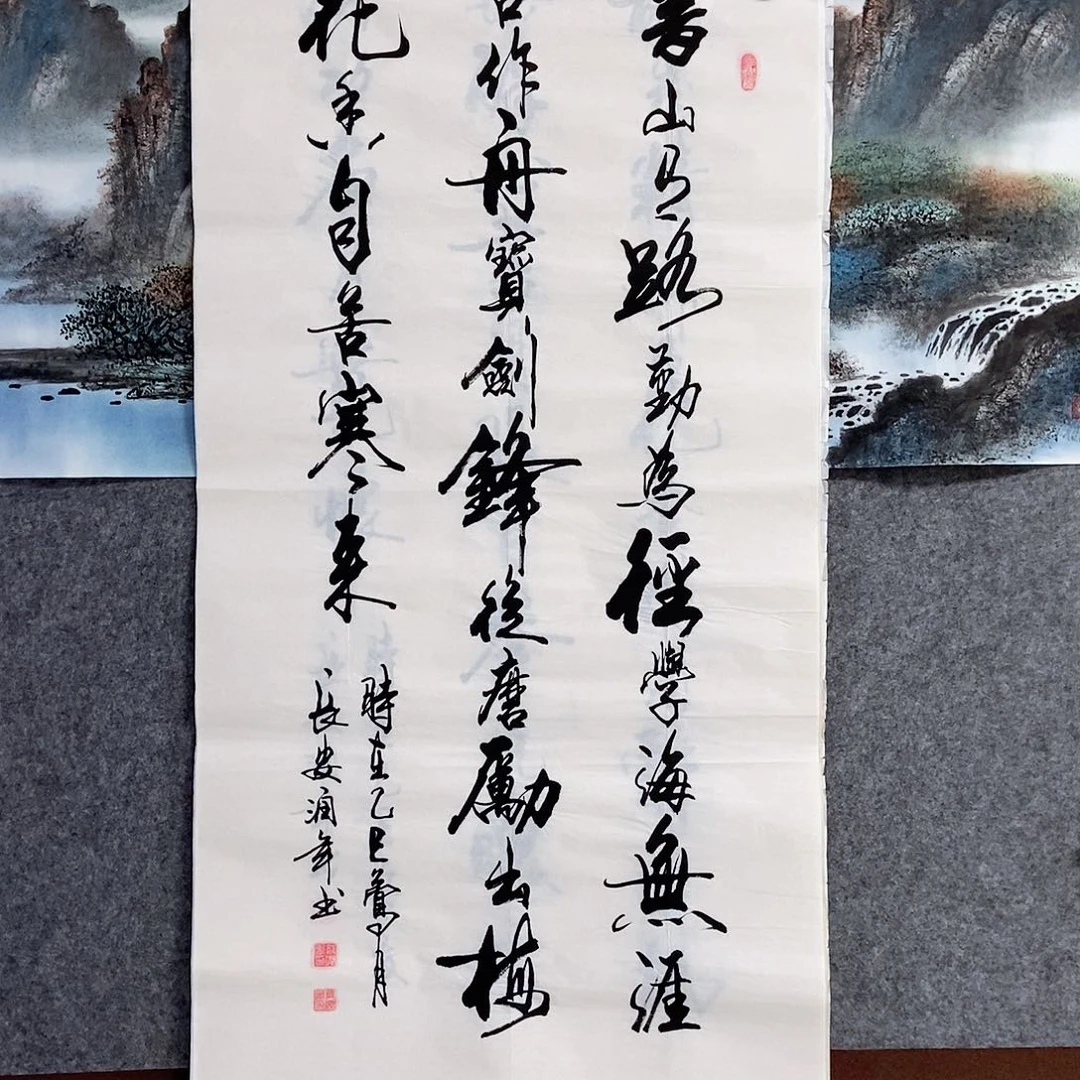 書山有路勤為徑學海無涯
苦作舟寶劍鋒從磨勵出梅
花香自苦寒来
時在乙巳月
長安潤年书